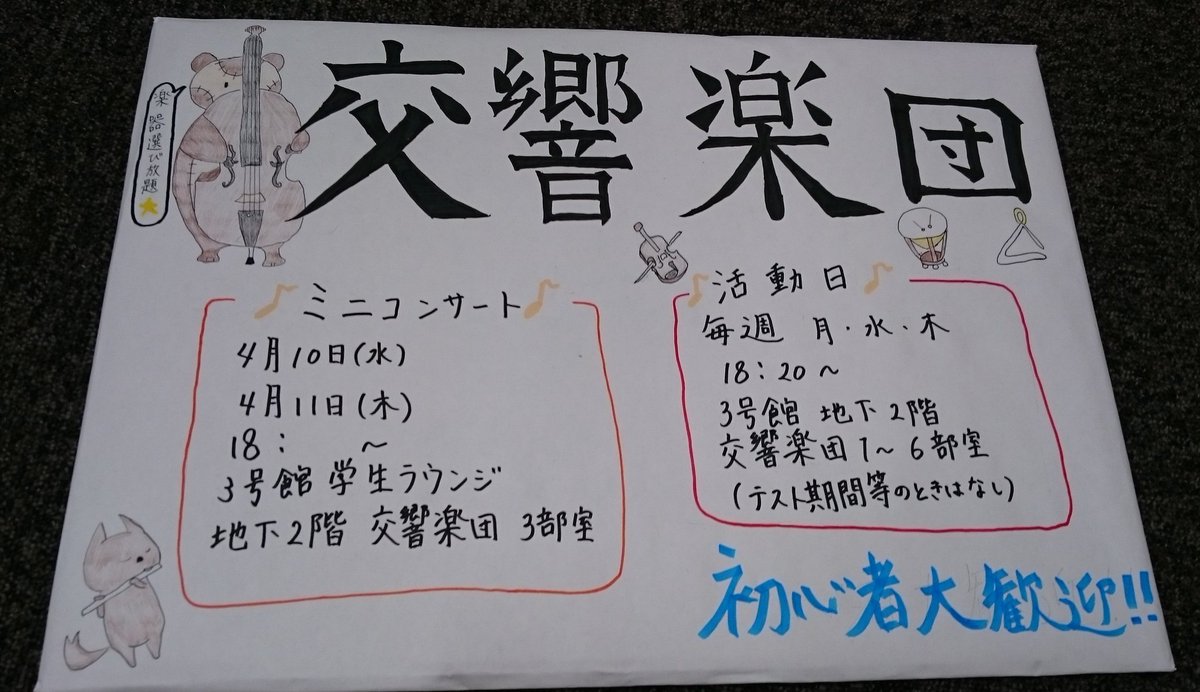 交響楽団
楽器選び放題
ミニコンサート
4月10日(水)
4月11日(木)
18: ～
3号館 学生ラウンジ
地下2階 交響楽団 3部室
活動日
毎週 月・水・木
18:20～
3号館 地下2階
交響楽団1～6部室
(テスト期間等のときはなし)
初心者大歓迎!!